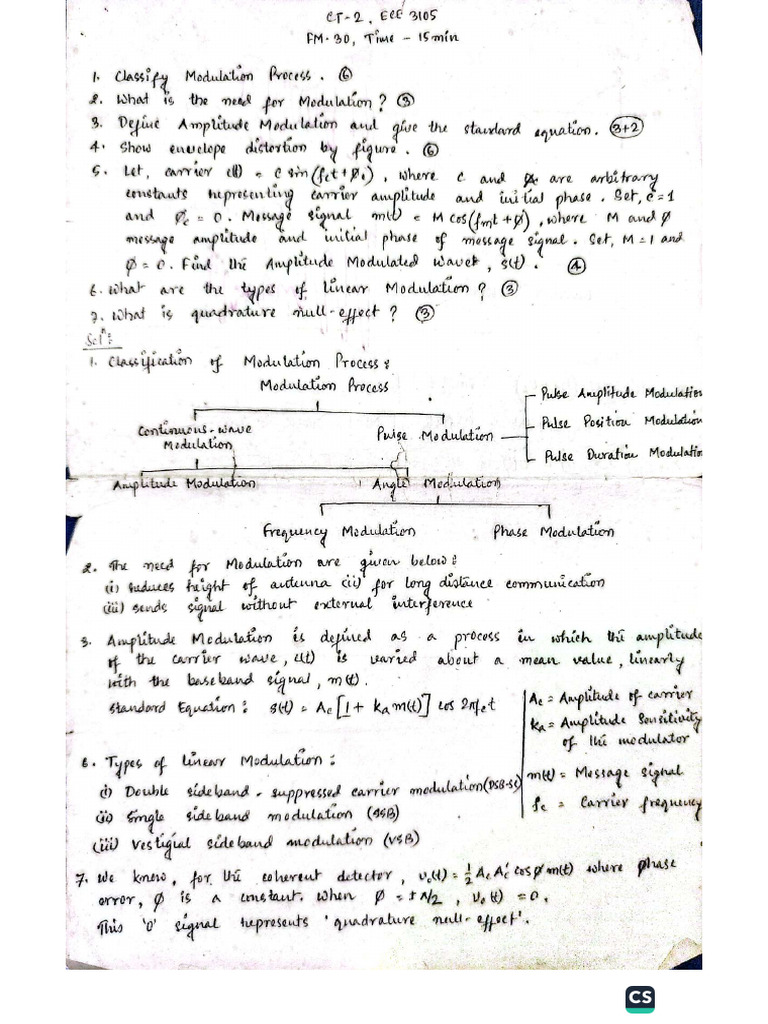 CT-2, ECE 3105
FM-30, Time - 15 min
1. Classify Modulation Process. ⑥
2. What is the need for Modulation? ③
3. Define Amplitude Modulation and give the standard equation. (3+2)
4. Show envelope distortion by figure. ⑥
5. Let, carrier c(t) = c sin(fct + Øc), where c and Øc are arbitrary
constants representing carrier amplitude and initial phase. Set, c = 1
and Øc = 0. Message signal m(t) = M cos(fmt + Ø), where M and Ø
message amplitude and initial phase of message signal. Set, M = 1 and
Ø = 0. Find the Amplitude Modulated wave, s(t). ④
6. What are the types of linear Modulation? ③
7. What is quadrature null-effect? ③
Solⁿ:
1. Classification of Modulation Process:
Modulation Process
Continuous-wave Modulation
Pulse Modulation
Pulse Amplitude Modulation
Pulse Position Modulation
Pulse Duration Modulation
Amplitude Modulation
Angle Modulation
Frequency Modulation
Phase Modulation
2. The need for Modulation are given below:
(i) reduces height of antenna (ii) for long distance communication
(iii) sends signal without external interference
3. Amplitude Modulation is defined as a process in which the amplitude
of the carrier wave, c(t) is varied about a mean value, linearly
with the baseband signal, m(t).
Standard Equation: s(t) = Ac[1 + kam(t)] cos 2πfct
Ac = Amplitude of carrier
ka = Amplitude Sensitivity
of the modulator
m(t) = Message signal
fc = Carrier frequency
6. Types of linear Modulation:
(i) Double sideband-suppressed carrier modulation (DSB-SC)
(ii) Single sideband modulation (SSB)
(iii) Vestigial sideband modulation (VSB)
7. We know, for the coherent detector, vo(t) = 1/2 Ac Ac' cos Ø m(t) where phase
error, Ø is a constant. When Ø = ± π/2, vo(t) = 0.
This '0' signal represents 'quadrature null-effect'.
CS